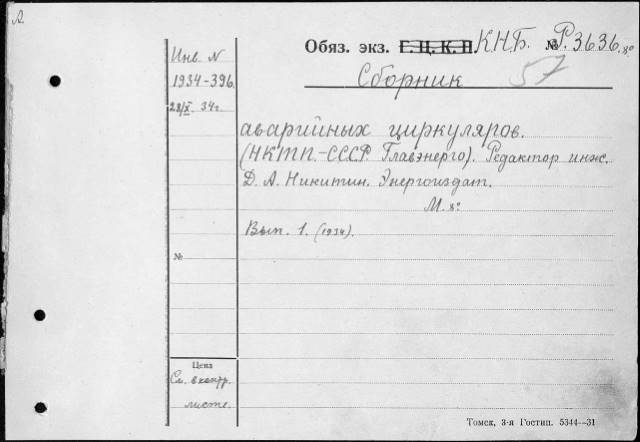 Д.
Инв. N
1934-396.
28/X. 34г.
Обяз. экз. Г. Ц. К. П. К.Н.Б. № Р.3636.8°
Сборник 57
аварийных циркуляров.
(НКТП.-СССР. Главэнерго). Редактор инж.
Д. А. Никитин. Энергоиздат.
М. 8°
Вып. 1. (1934).
№
Цена
См. в контр.
листе.
Томск, 3-я Гостип. 5344—31